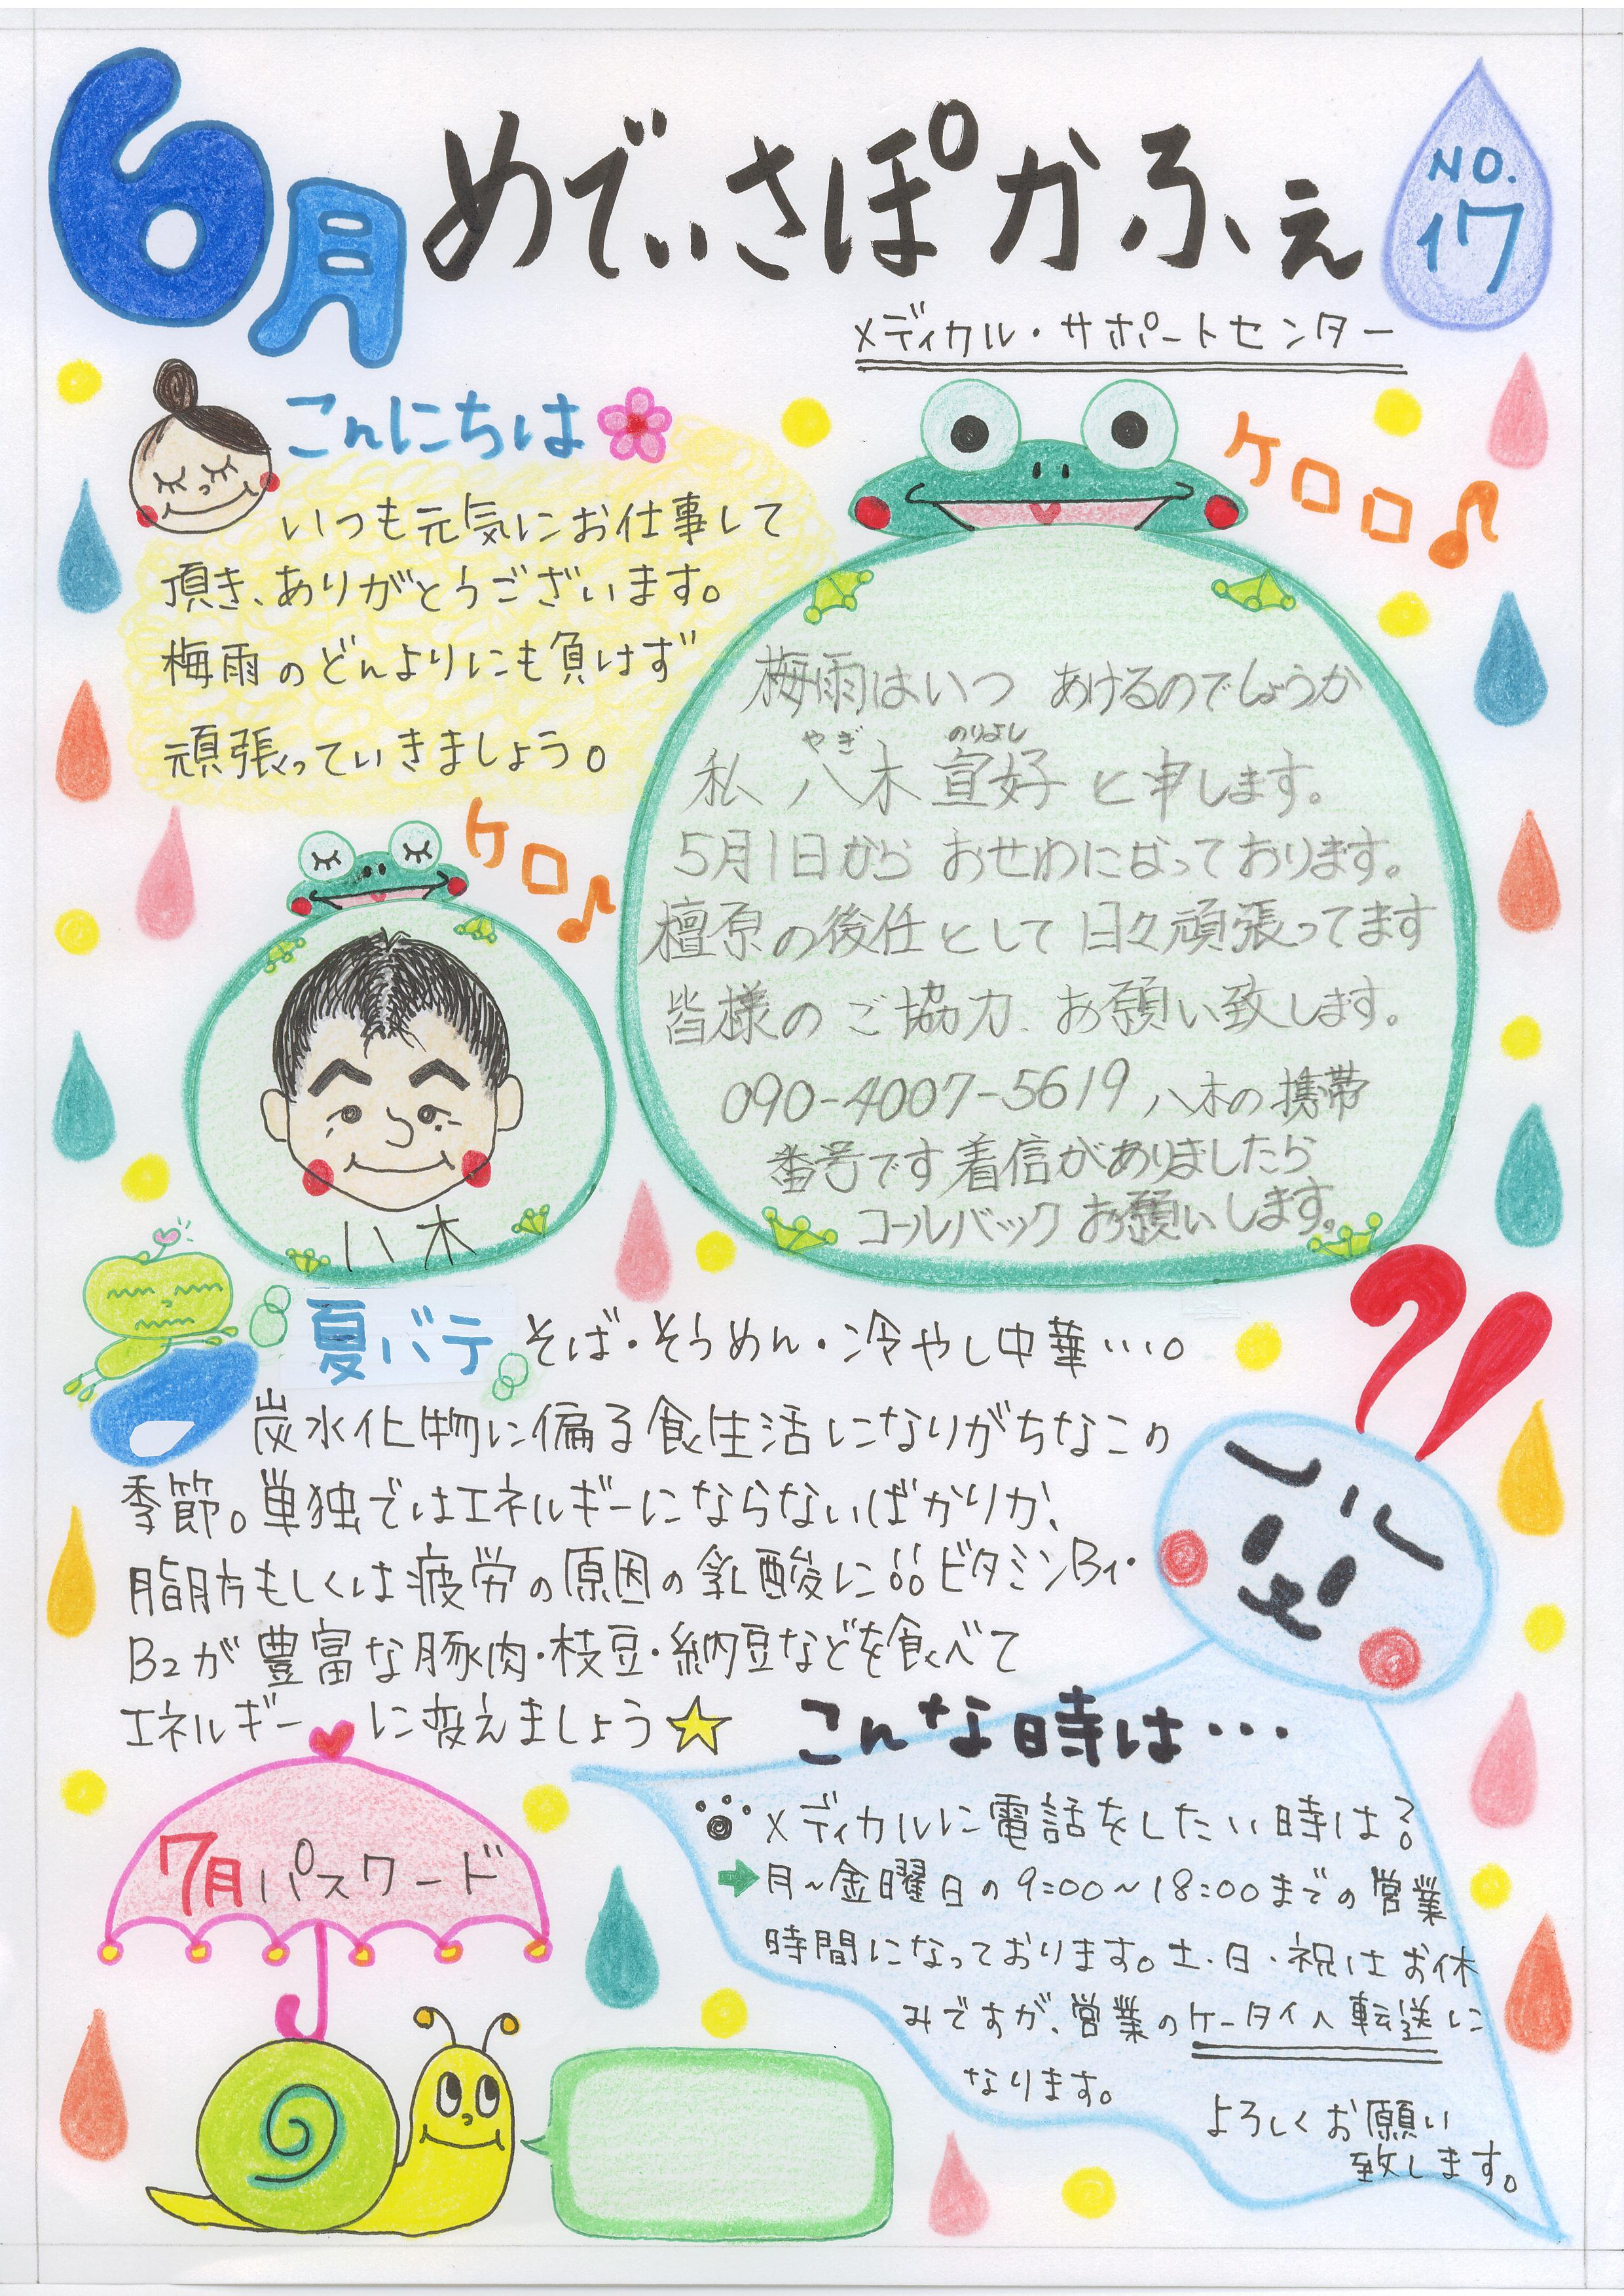 6月
めでぃさぽかふぇ
NO.
17
メディカル・サポートセンター
こんにちは
いつも元気にお仕事して
頂き、ありがとうございます。
梅雨のどんよりにも負けず
頑張っていきましょう。
ケロロ♪
梅雨はいつ あけるのでしょうか
やぎ のりよし
私 八木 宣好 と申します。
5月1日から おせわになっております。
檀原の後任として 日々頑張ってます
皆様の ご協力、お願い致します。
090-4007-5619 八木の携帯
番号です 着信がありましたら
コールバック お願いします。
ケロ♪
八木
夏バテ そば・そうめん・冷やし中華・・・。
炭水化物に偏る食生活になりがちなこの
季節。単独ではエネルギーにならないばかりか、
脂肪もしくは疲労の原因の乳酸に。。ビタミンB1・
B2が豊富な豚肉・枝豆・納豆などを食べて
エネルギーに変えましょう☆
?!
こんな時は・・・
メディカルに電話をしたい時は?
➡月~金曜日の9:00~18:00までの営業
時間になっております。土・日・祝はお休
みですが、営業のケータイへ転送に
なります。
よろしくお願い
致します。
7月パスワード